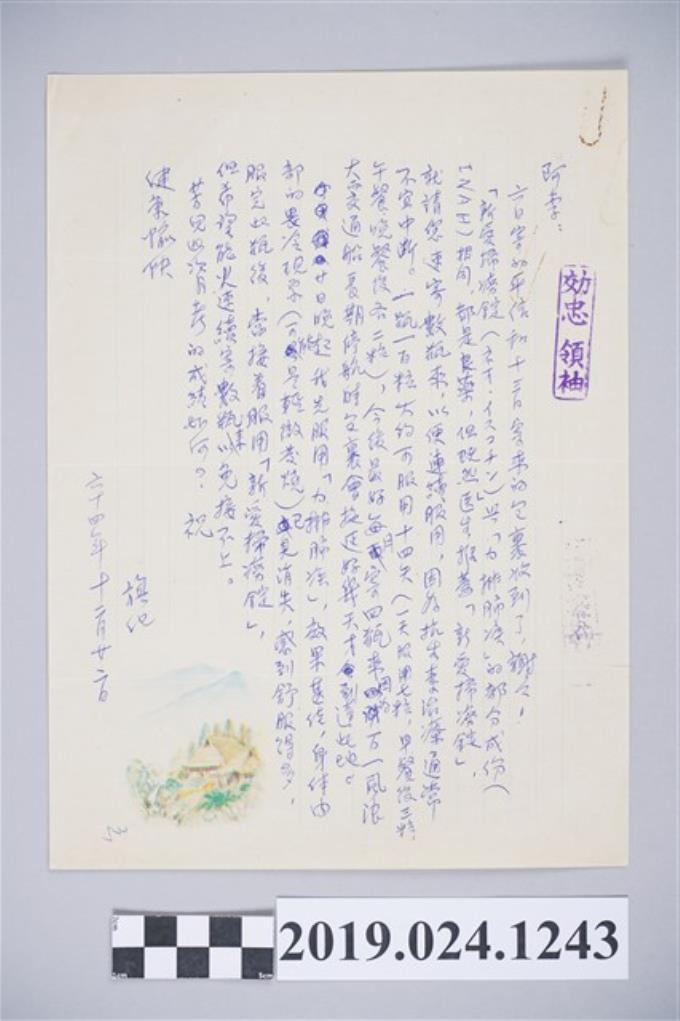 阿李：
六日寄的平信和十三日寄來的包裹收到了，謝々！
「新愛掃癆錠（ネオ・イスコチン）」與「力排肺疾」的部分成份（
INAH）相同，都是良藥，但既然医生推薦「新愛掃癆錠」，
就請您速寄數瓶來，以便連續服用，因為抗生素治療通常
不宜中断。一瓶一百粒大約可服用十四天（一天服用七粒，早餐後三粒
午餐、晚餐後各二粒），今後最好每月寄四瓶來，因為万一風浪
大，交通船長期停航時包裹會拖延好幾天才到達此地。
廿日晚起我先服用「力排肺疾」，效果甚佳，身体内
部的畏冷現象（可能是輕微发燒）已見消失，感到舒服得多，
服完此瓶後，當接着服用「新愛掃癆錠」，
但希望能火速續寄數瓶來以免接不上。
芳兒此次月考的成績如何？ 祝
健康愉快
旗化
六十四年十二月廿二日
効忠領袖
53
2019.024.1243